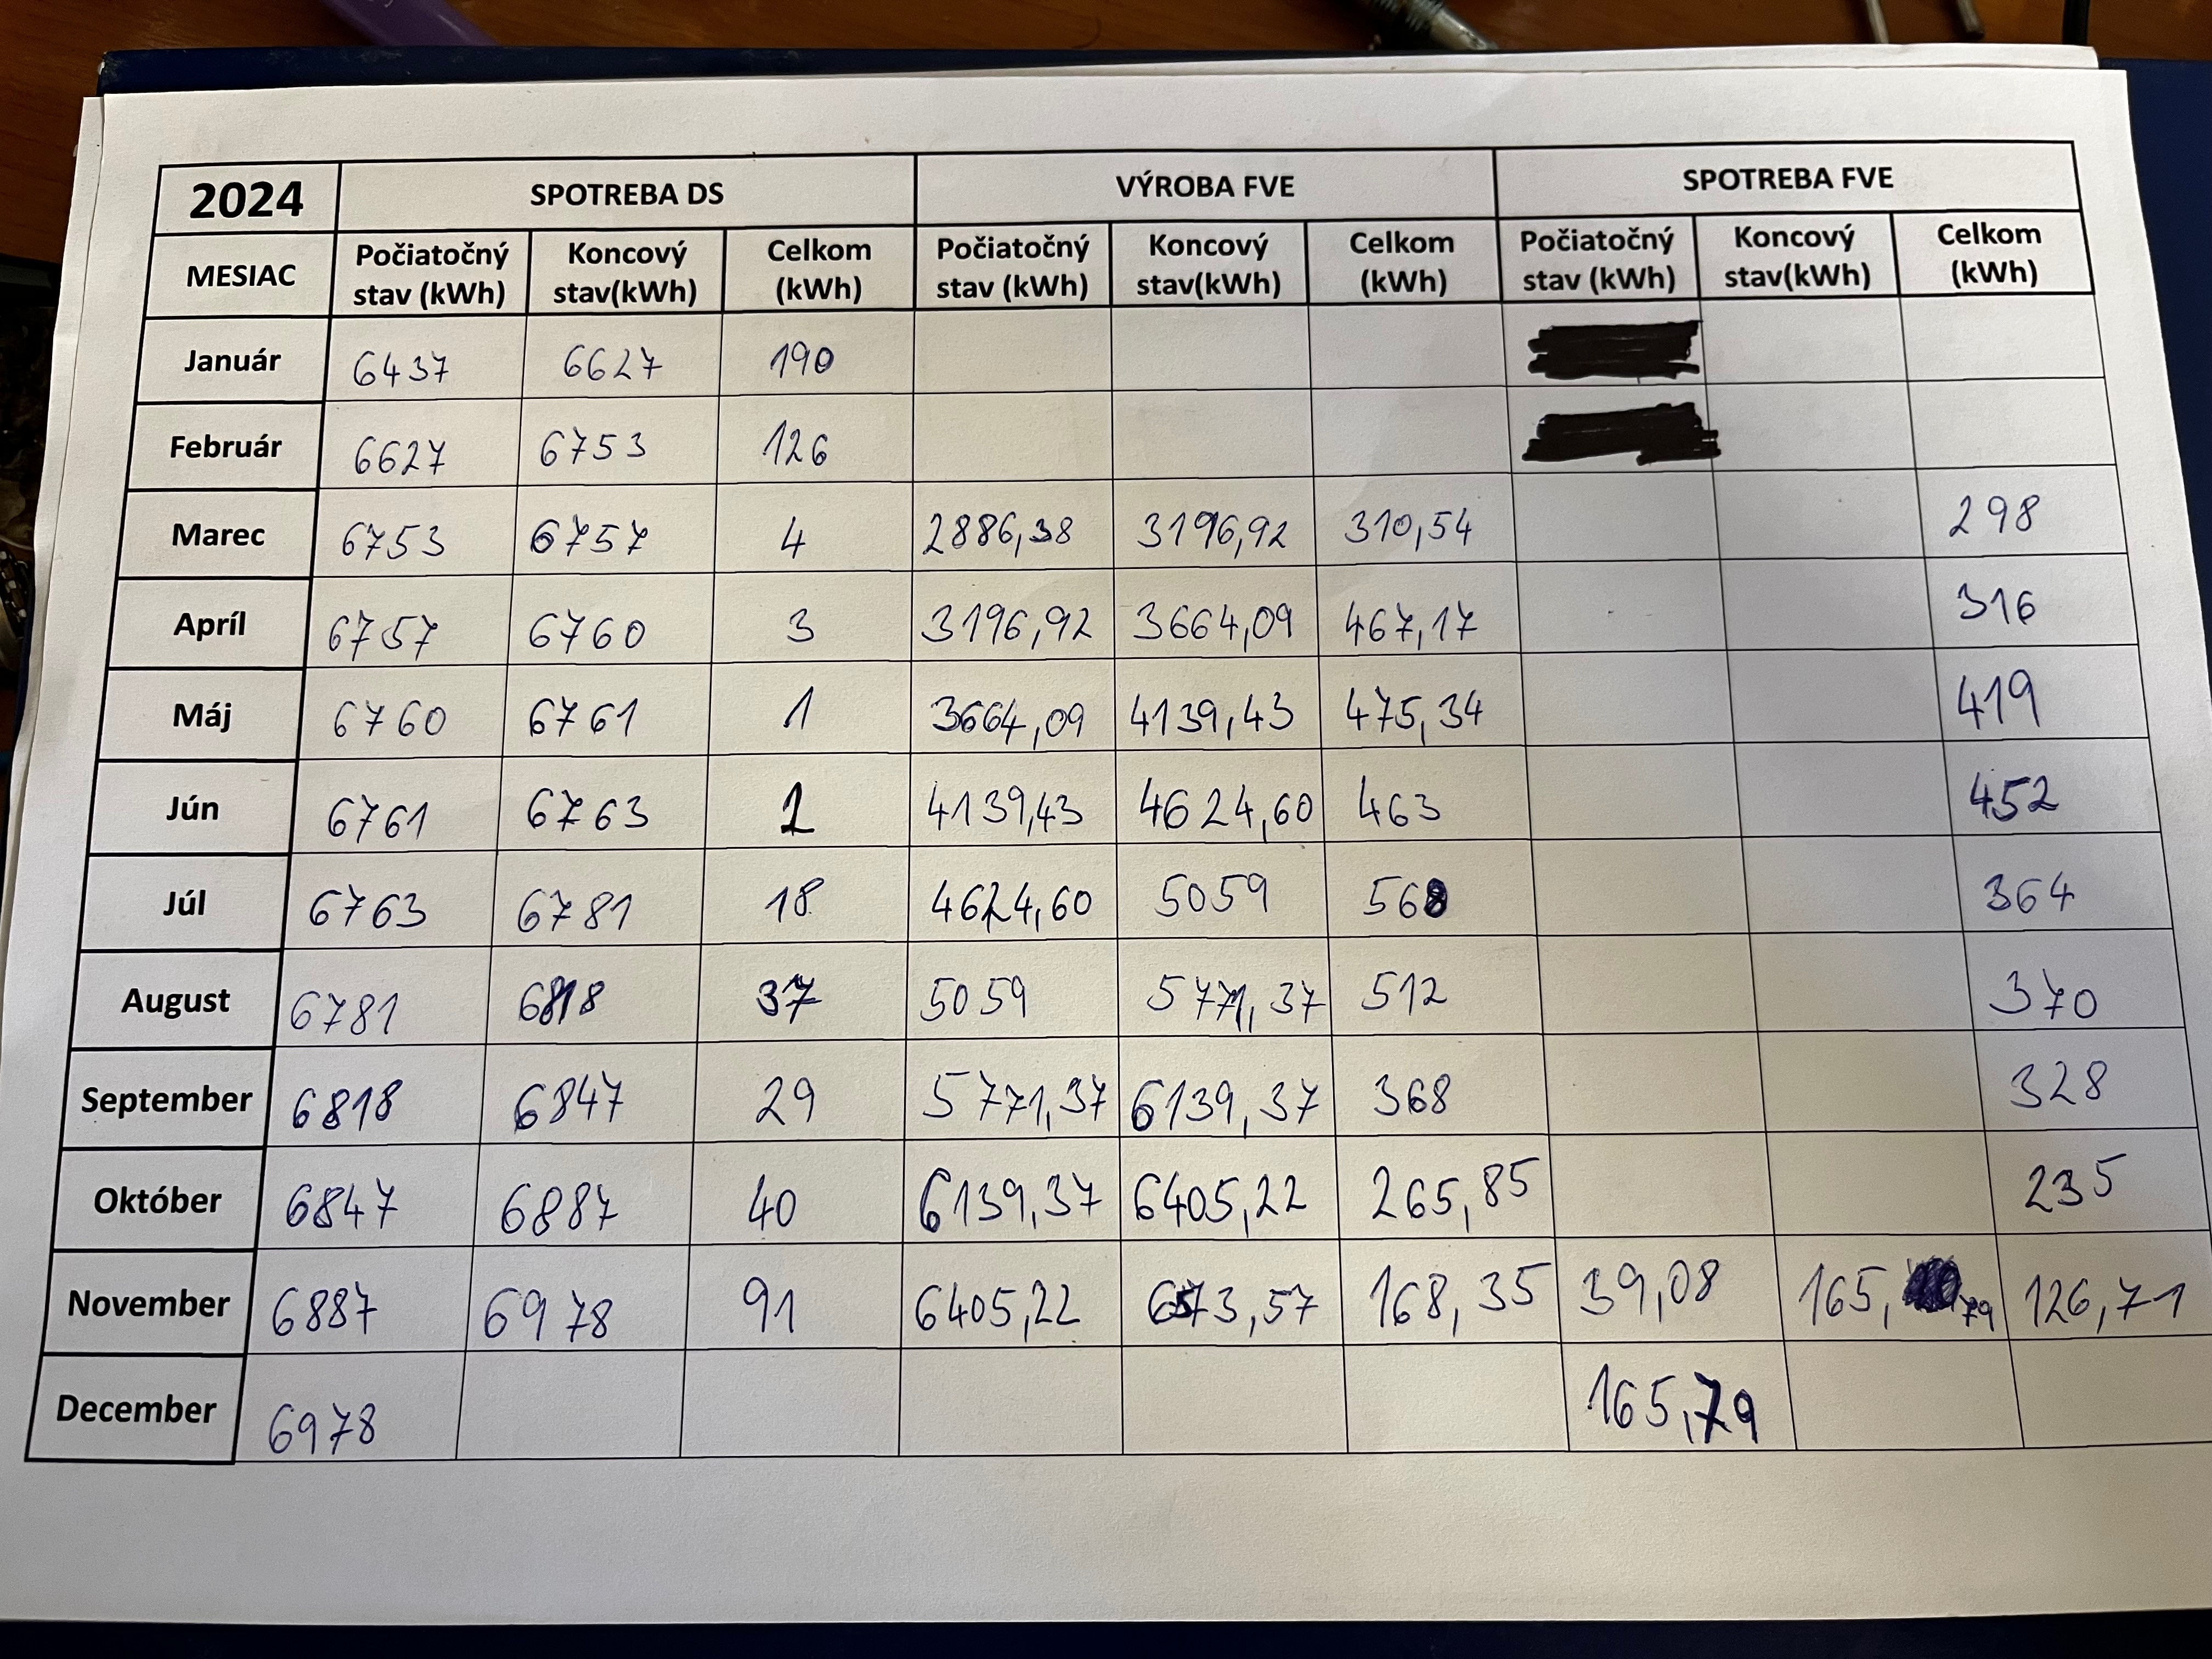 2024 SPOTREBA DS VÝROBA FVE SPOTREBA FVE
MESIAC Počiatočný stav (kWh) Koncový stav(kWh) Celkom (kWh) Počiatočný stav (kWh) Koncový stav(kWh) Celkom (kWh) Počiatočný stav (kWh) Koncový stav(kWh) Celkom (kWh)
Január 6437 6627 190
Február 6627 6753 126
Marec 6753 6757 4 2886,38 3196,92 310,54 298
Apríl 6757 6760 3 3196,92 3664,09 467,17 316
Máj 6760 6761 1 3664,09 4139,43 475,34 419
Jún 6761 6763 4139,43 4624,60 463 452
Júl 6763 6781 18 4624,60 5059 568 364
August 6781 6818 37 5059 5771,37 512 370
September 6818 6847 29 5771,37 6139,37 368 328
Október 6847 6887 40 6139,37 6405,22 265,85 235
November 6887 6978 91 6405,22 6573,57 168,35 39,08 165,79 126,71
December 6978 165,79